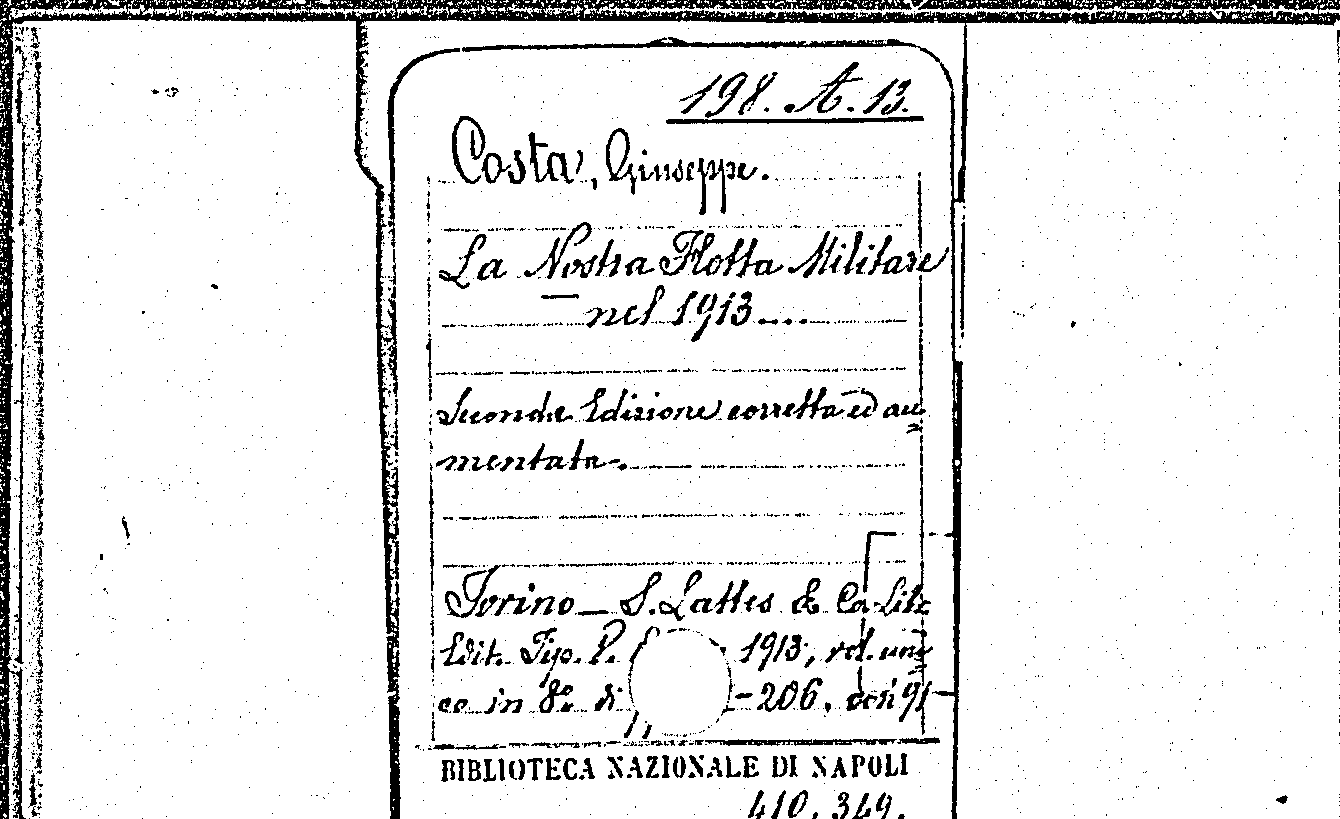 198. A. 13.
Costa, Giuseppe.
La Nostra Flotta Militare
nel 1913....
Seconda Edizione corretta ed au=
mentata.
Torino - S. Lattes & C. Lib.
Edit. Tip. P. 1913, vol. uni=
co in 8º di -206. con 91
BIBLIOTECA NAZIONALE DI NAPOLI
410.349.